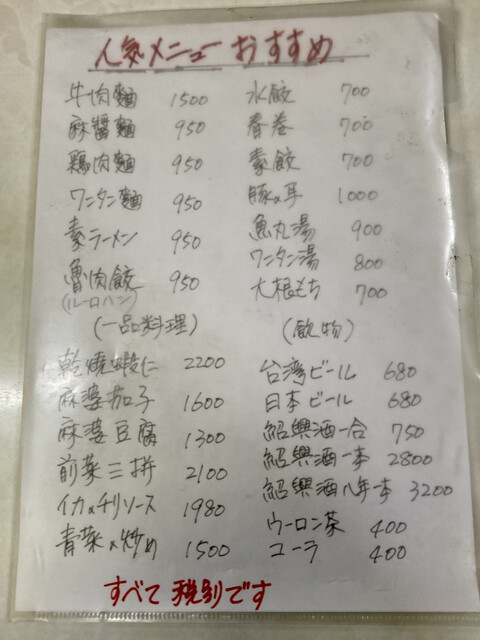 人気メニューおすすめ
牛肉麺 1500
麻醤麺 950
鶏肉麺 950
ワンタン麺 950
素ラーメン 950
魯肉飯 950
(ルーロハン)
水餃 700
春巻 700
素餃 700
豚の耳 1000
魚丸湯 900
ワンタン湯 800
大根もち 700
(一品料理)
乾燒蝦仁 2200
麻婆茄子 1600
麻婆豆腐 1300
前菜三拼 2100
イカのチリソース 1980
青菜の炒め 1500
(飲物)
台湾ビール 680
日本ビール 680
紹興酒一合 750
紹興酒一本 2800
紹興酒八年一本 3200
ウーロン茶 400
コーラ 400
すべて税別です